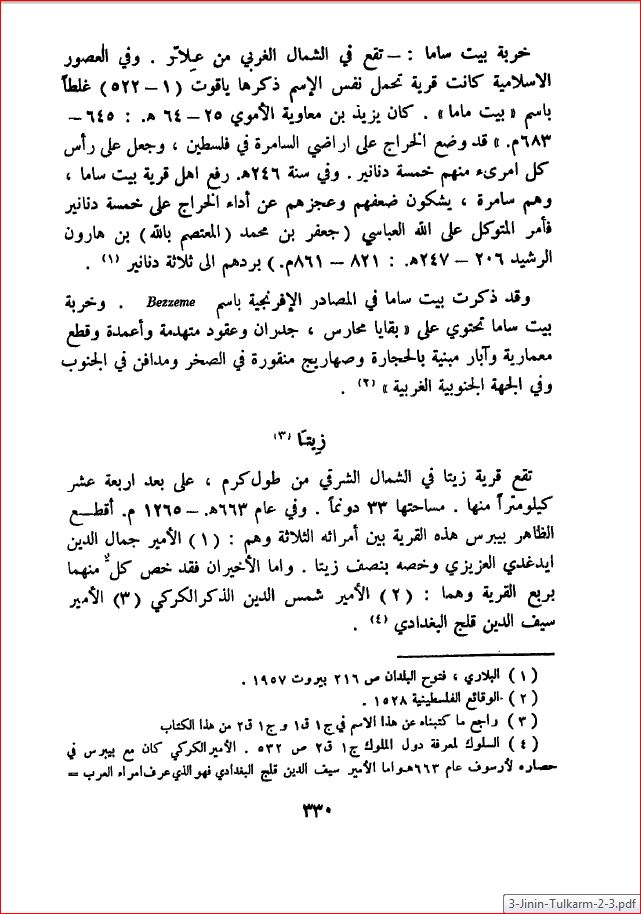 خربة بيت ساما : – تقع في الشمال الغربي من عِلاّر . وفي العصور
الاسلامية كانت قرية تحمل نفس الإسم ذكرها ياقوت (١ – ٥٢٢) غلطاً
باسم « بيت ماما » . كان يزيد بن معاوية الأموي ٢٥ – ٦٤ هـ. : ٦٤٥ –
٦٨٣م. » قد وضع الخراج على اراضي السامرة في فلسطين ، وجعل على رأس
كل امرىء منهم خمسة دنانير . وفي سنة ٢٤٦هـ. رفع اهل قرية بيت ساما ،
وهم سامرة ، يشكون ضعفهم وعجزهم عن أداء الخراج على خمسة دنانير
فأمر المتوكل على الله العباسي (جعفر بن محمد (المعتصم بالله) بن هارون
الرشيد ٢٠٦ – ٢٤٧هـ. : ٨٢١ – ٨٦١م.) بردهم الى ثلاثة دنانير (١) .
وقد ذكرت بيت ساما في المصادر الإفرنجية باسم Bezzeme . وخربة
بيت ساما تحتوي على « بقايا محارس ، جدران وعقود متهدمة وأعمدة وقطع
معمارية وآبار مبنية بالحجارة وصهاريج منقورة في الصخر ومدافن في الجنوب
وفي الجهة الجنوبية الغربية » (٢) .
زيتا (٣)
تقع قرية زيتا في الشمال الشرقي من طول كرم ، على بعد اربعة عشر
كيلومتراً منها . مساحتها ٣٣ دونماً . وفي عام ٦٦٣هـ. – ١٢٦٥ م. أقطع
الظاهر بيبرس هذه القرية بين أمرائه الثلاثة وهم : (١) الأمير جمال الدين
ايدغدي العزيزي وخصه بنصف زيتا . واما الأخيران فقد خص كلٌ منهما
بربع القرية وهما : (٢) الأمير شمس الدين الذكر الكركي (٣) الأمير
سيف الدين قلج البغدادي (٤) .
(١) البلاري ، فتوح البلدان ص ٢١٦ بيروت ١٩٥٧ .
(٢) الوقائع الفلسطينية ١٥٢٨ .
(٣) راجع ما كتبناه عن هذا الاسم في ج١ ق١ و ج١ ق٢ من هذا الكتاب
(٤) السلوك لمعرفة دول الملوك ج١ ق٢ ص ٥٣٢ . الأمير الكركي كان مع بيبرس في
حصاره لأرسوف عام ٦٦٣هـ واما الأمير سيف الدين قلج البغدادي فهو الذي عرف امراء العرب =
٣٣٠
3-Jinin-Tulkarm-2-3.pdf